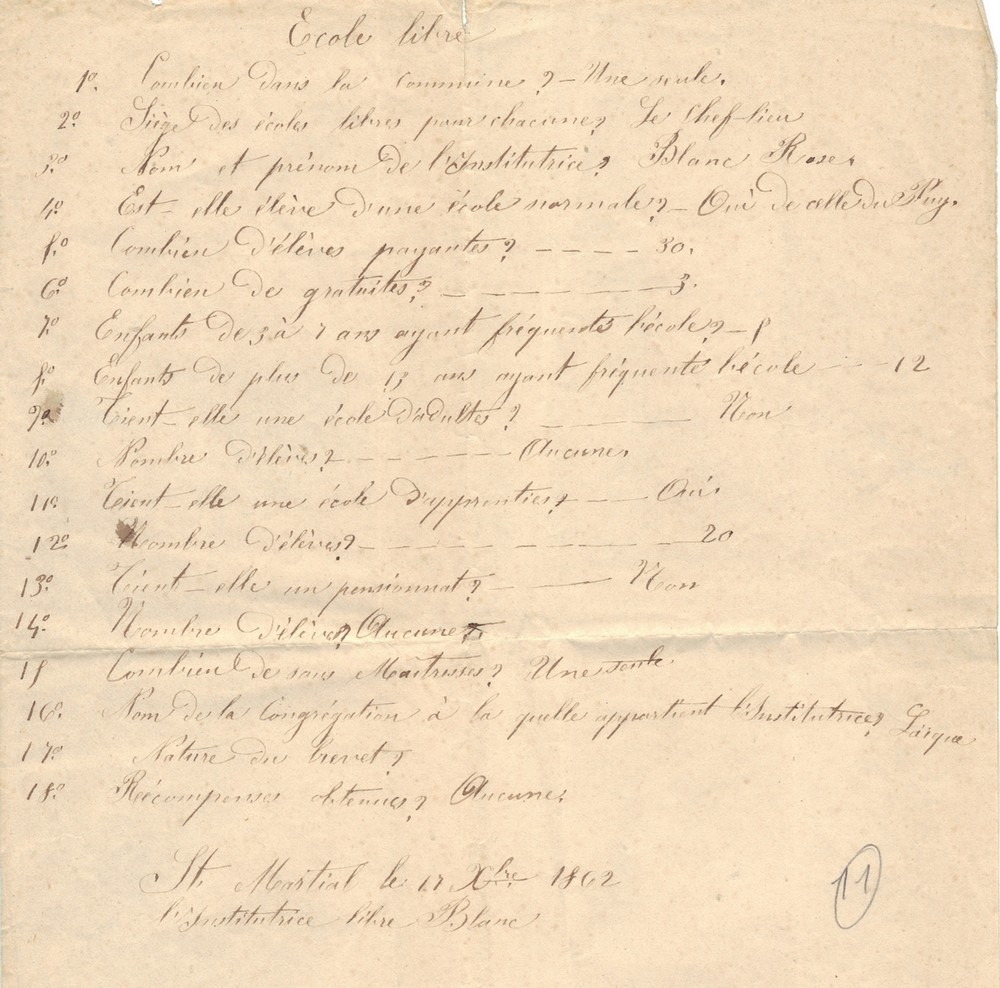 Ecole libre
1º. Combien dans la commune ? – Une seule.
2º. Siège des écoles libres pour chacune ? Le Chef-lieu
3º. Nom et prénom de l'Institutrice ? Blanc Rose.
4º. Est-elle élève d'une école normale ? – Oui de celle du Puy.
5º. Combien d'élèves payantes ? – – – – 30.
6º. Combien de gratuites ? – – – – – 3.
7º. Enfants de 3 à 7 ans ayant fréquenté l'école ? – 5
8º. Enfants de plus de 13 ans ayant fréquenté l'école – – – 12
9º. Tient-elle une école d'adultes ? – – – – Non
10º. Nombre d'élèves ? – – – – – Aucune.
11º. Tient-elle une école d'apprenties ? – – – Oui
12º. Nombre d'élèves ? – – – – – – – 20
13º. Tient-elle un pensionnat ? – – – – Non
14º. Nombre d'élèves ? Aucune
15 Combien de sous Maîtresses ? Une seule
16º. Nom de la Congrégation à la quelle appartient l'Institutrice ? Laïque
17º. Nature du brevet ?
18º. Récompenses obtenues ? Aucune.
St. Martial le 17 Xbre 1862
l'Institutrice libre Blanc
11